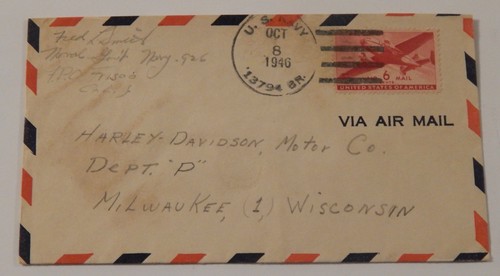 Fred L. Smith
Navy 926
U.S. NAVY
OCT
8
1946
13794 BR.
6¢ AIR MAIL
UNITED STATES OF AMERICA
VIA AIR MAIL
HARLEY-DAVIDSON, MOTOR CO.
DEPT. "P"
MILWAUKEE, (1) WISCONSIN